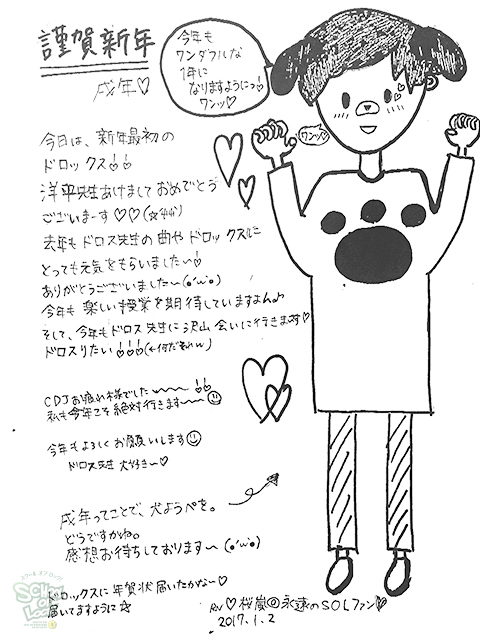 謹賀新年
戌年♡
今年も
ワンダフルな
1年に
なりますようにっ!
ワンッ♡
ワンッ♡
今日は、新年最初の
ドロックス!!
洋平先生あけましておめでとう
ございまーす♡♡(☆'ω'☆)
去年もドロス先生の曲やドロックスに
とっても元気をもらいました〜!
ありがとうございました〜(๑'ω'๑)
今年も楽しい授業を期待していますよん♪
そして、今年もドロス先生に沢山会いに行きます♡
ドロスりたい!!!(←何だそれw)
CDJお疲れ様でした〜〜〜!!
私も今年こそ絶対行きます〜〜☺
今年もよろしくお願いします☺
ドロス先生 大好き〜♡
戌年ってことで、犬ようぺを。
どうですかね。
感想お待ちしております〜(๑'ω'๑)
ドロックスに年賀状届いたかな〜♡
届いてますように☆
RN♡桜嵐@永遠のSOLファン♡
2017.1.2
SCHOOL OF LOCK!